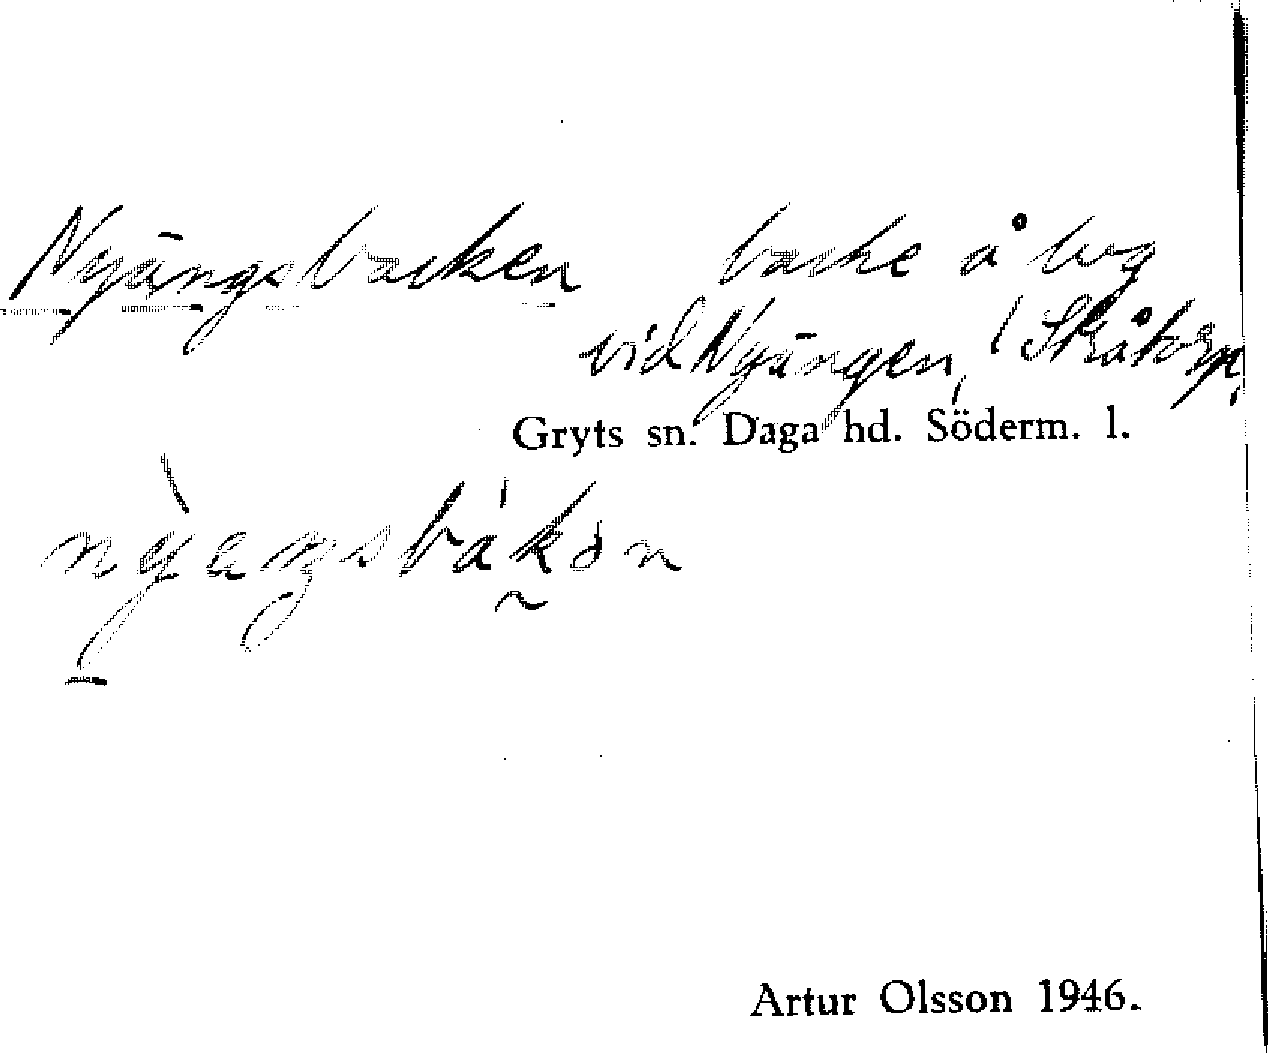 Nyängsbacken backe å beg
vid Nyängen, (Skåtorp,
Gryts sn. Daga hd. Söderm. l.
Artur Olsson 1946.